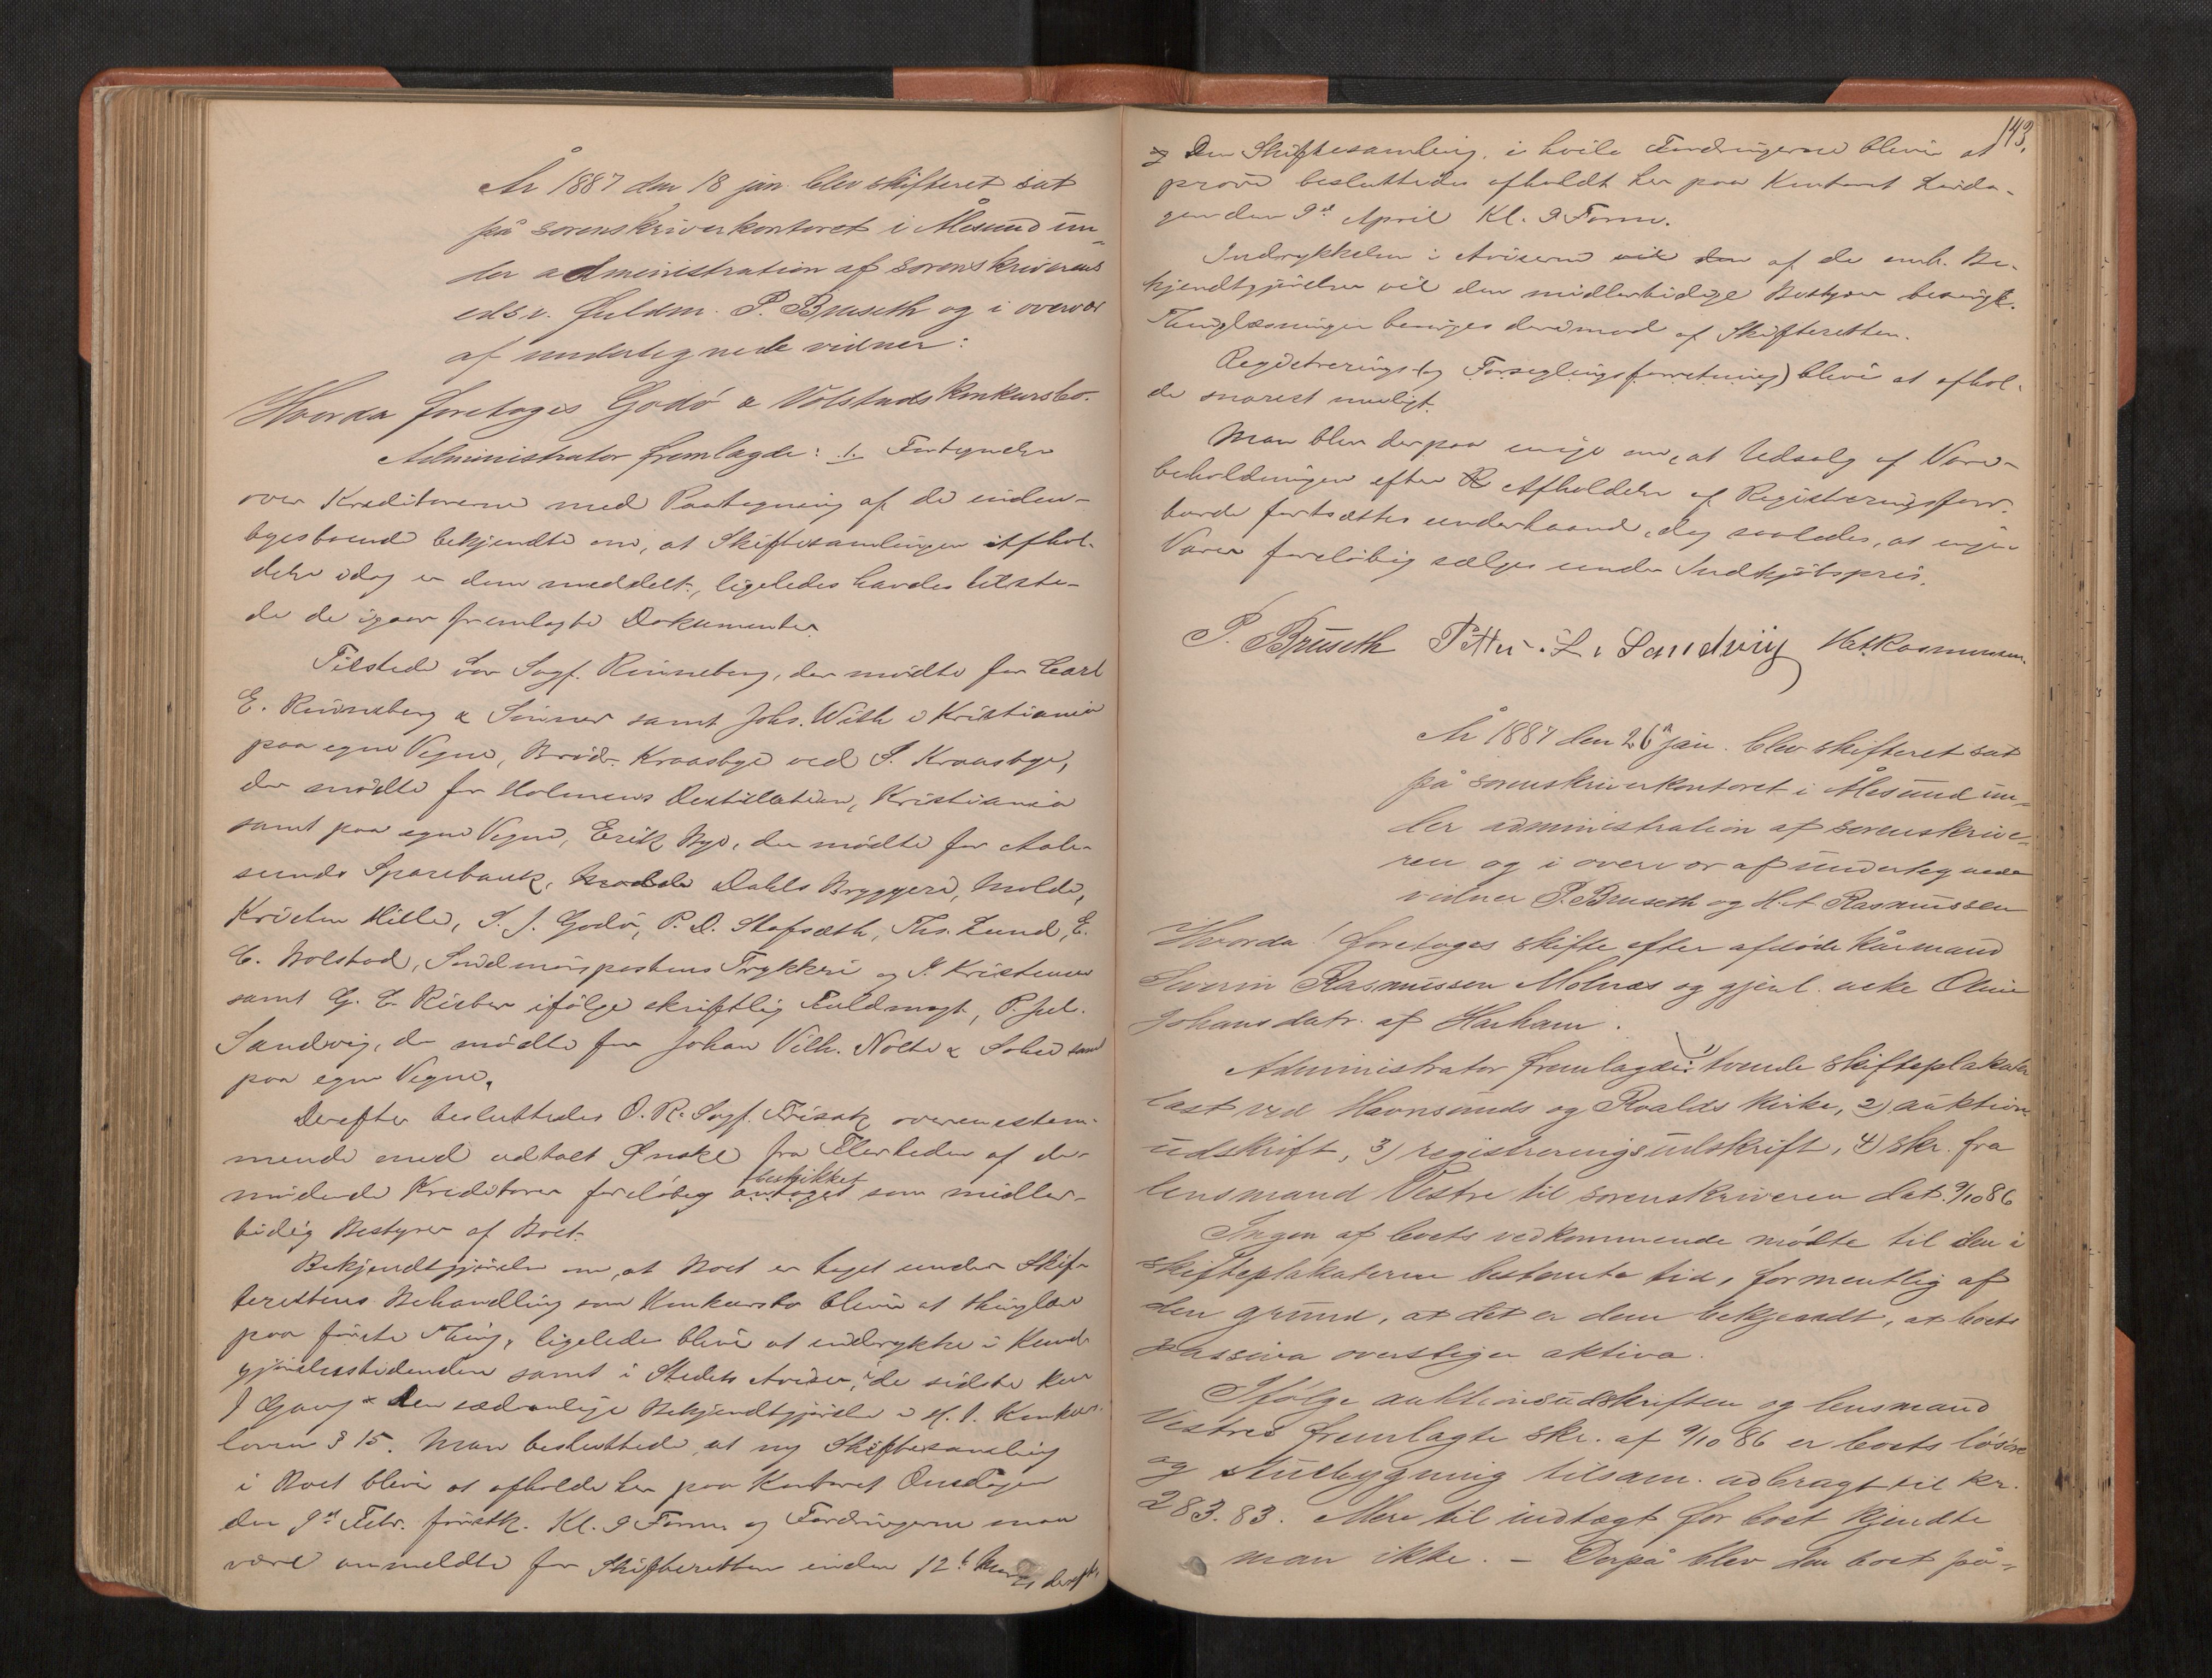 År 1887 den 18 jan. blev skifteret sat
på sorenskriverkontoret i Ålesund un-
der administration af sorenskriverens
edsv. fuldm. P. Bruseth og i overvær
af undertegnede vidner:
Hvorda foretoges Godø & Volstads Konkursbo.
Administrator fremlagde: 1. Fortegnelse
over Kreditorerne med Paategning af de inden-
bysboende bekjendte om, at Skiftesamlingen Afhol-
delse idag er dem meddelt, ligeledes havdes tilste-
de de igaar fremlagte Dokumenter.
Tilstede var Sagf. Rinneberg, der mødte for Carl
E. Rinneberg & Sønner samt Johs. With i Kristiania
paa egne Vegne, Brødr. Kraasbye ved S. Kraasbye,
der mødte for Holmens Destillation, Kristiania
samt paa egne Vegne, Erik Nyo, der mødte for Aale-
sunds Sparebank, Dahls Bryggeri, Molde,
Kristen Hille, S. J. Godø, P. D. Stafsæth, Ths. Lund, E.
C. Volstad, Søndmørspostens Trykkeri og P. Kristensen
samt G. C. Rieber ifølge skriftlig Fuldmagt, P. Jul.
Sandvig, der mødte for Johan Vilh. Nolte & Sohn samt
paa egne Vegne.
Derefter besluttedes O. R. Sagf. Frisak overensstem-
mende med udtalt Ønske fra Flerheden af de
mødende Kreditorer foreløbig antaget beskikket som midler-
tidig Bestyrer af Boet.
Bekjendtgjørelse om, at Boet er taget under Skif-
terettens Behandling som Konkursbo bliver at thinglæse
paa første Thing, ligeledes bliver at indrykke i Kund-
gjørelsestidenden samt i Stedets Aviser, i de sidste kun
1 Gang den sædvanlige Bekjendtgjørelse i H. t. Konkurs-
loven § 15. Man besluttede, at ny Skiftesamling
i Boet bliver at afholde her paa Kontoret Onsdagen
den 9d Febr. førstk. Kl. 9 Form. og Fordringerne maa
være anmeldte for Skifteretten inden 12t Marts derefter
143.
Den Skiftesamling, i hvile Fordringerne bliver at
prøve besluttedes afholdt her paa Kontoret Lørda-
gen den 9d April Kl. 9 Form.
Indrykkelsen i Aviserne af de omh. Be-
kjendtgjørelser vil den midlertidige Bestyrer besørge.
Thinglæsningen besørges derimod af Skifteretten.
Registrerings- (og Forseglingsforretning) bliver at afhol-
de snarest muligt.
Man blev derpaa enige om, at Udsalg af Vare-
beholdningen efter Afholdelse af Registreringsforr.
burde fortsættes underhaand, dog saaledes, at ingen
Varer foreløbig sælges under Indkjøbspris.
P. Bruseth Petter. L. Sandvig H. A. Rasmussen.
År 1887 den 26 jan. blev skifteret sat
på sorenskriverkontoret i Ålesund un-
der administration af sorenskrive-
ren og i overvær af undertegnede
vidner P. Bruseth og H. A. Rasmussen
Hvorda! foretoges skifte efter afdøde kårmand
Severin Rasmussen Molnæs og gjenl. enke Oline
Johansdatr. af Harham.
Administrator fremlagde: 1) tvende skifteplakater
læst ved Havnsunds og Roalds kirke, 2) auktions
udskrift, 3) registreringsudskrift, 4) skr. fra
lensmand Vestre til sorenskriveren dat. 9/10 86
Ingen af boets vedkommende mødte til den i
skifteplakaterne bestemte tid, formentlig af
den grund, at det er dem bekjendt, at boets
passiva overstiger aktiva.
Ifølge auktionsudskriften og lensmand
Vestres fremlagte skr. af 9/10 86 er boets løsøre
og stuebygning tilsam. udbragt til kr.
283.83. Mere til indtægt for boet kjendte
man ikke. – Derpå blev den boet på-